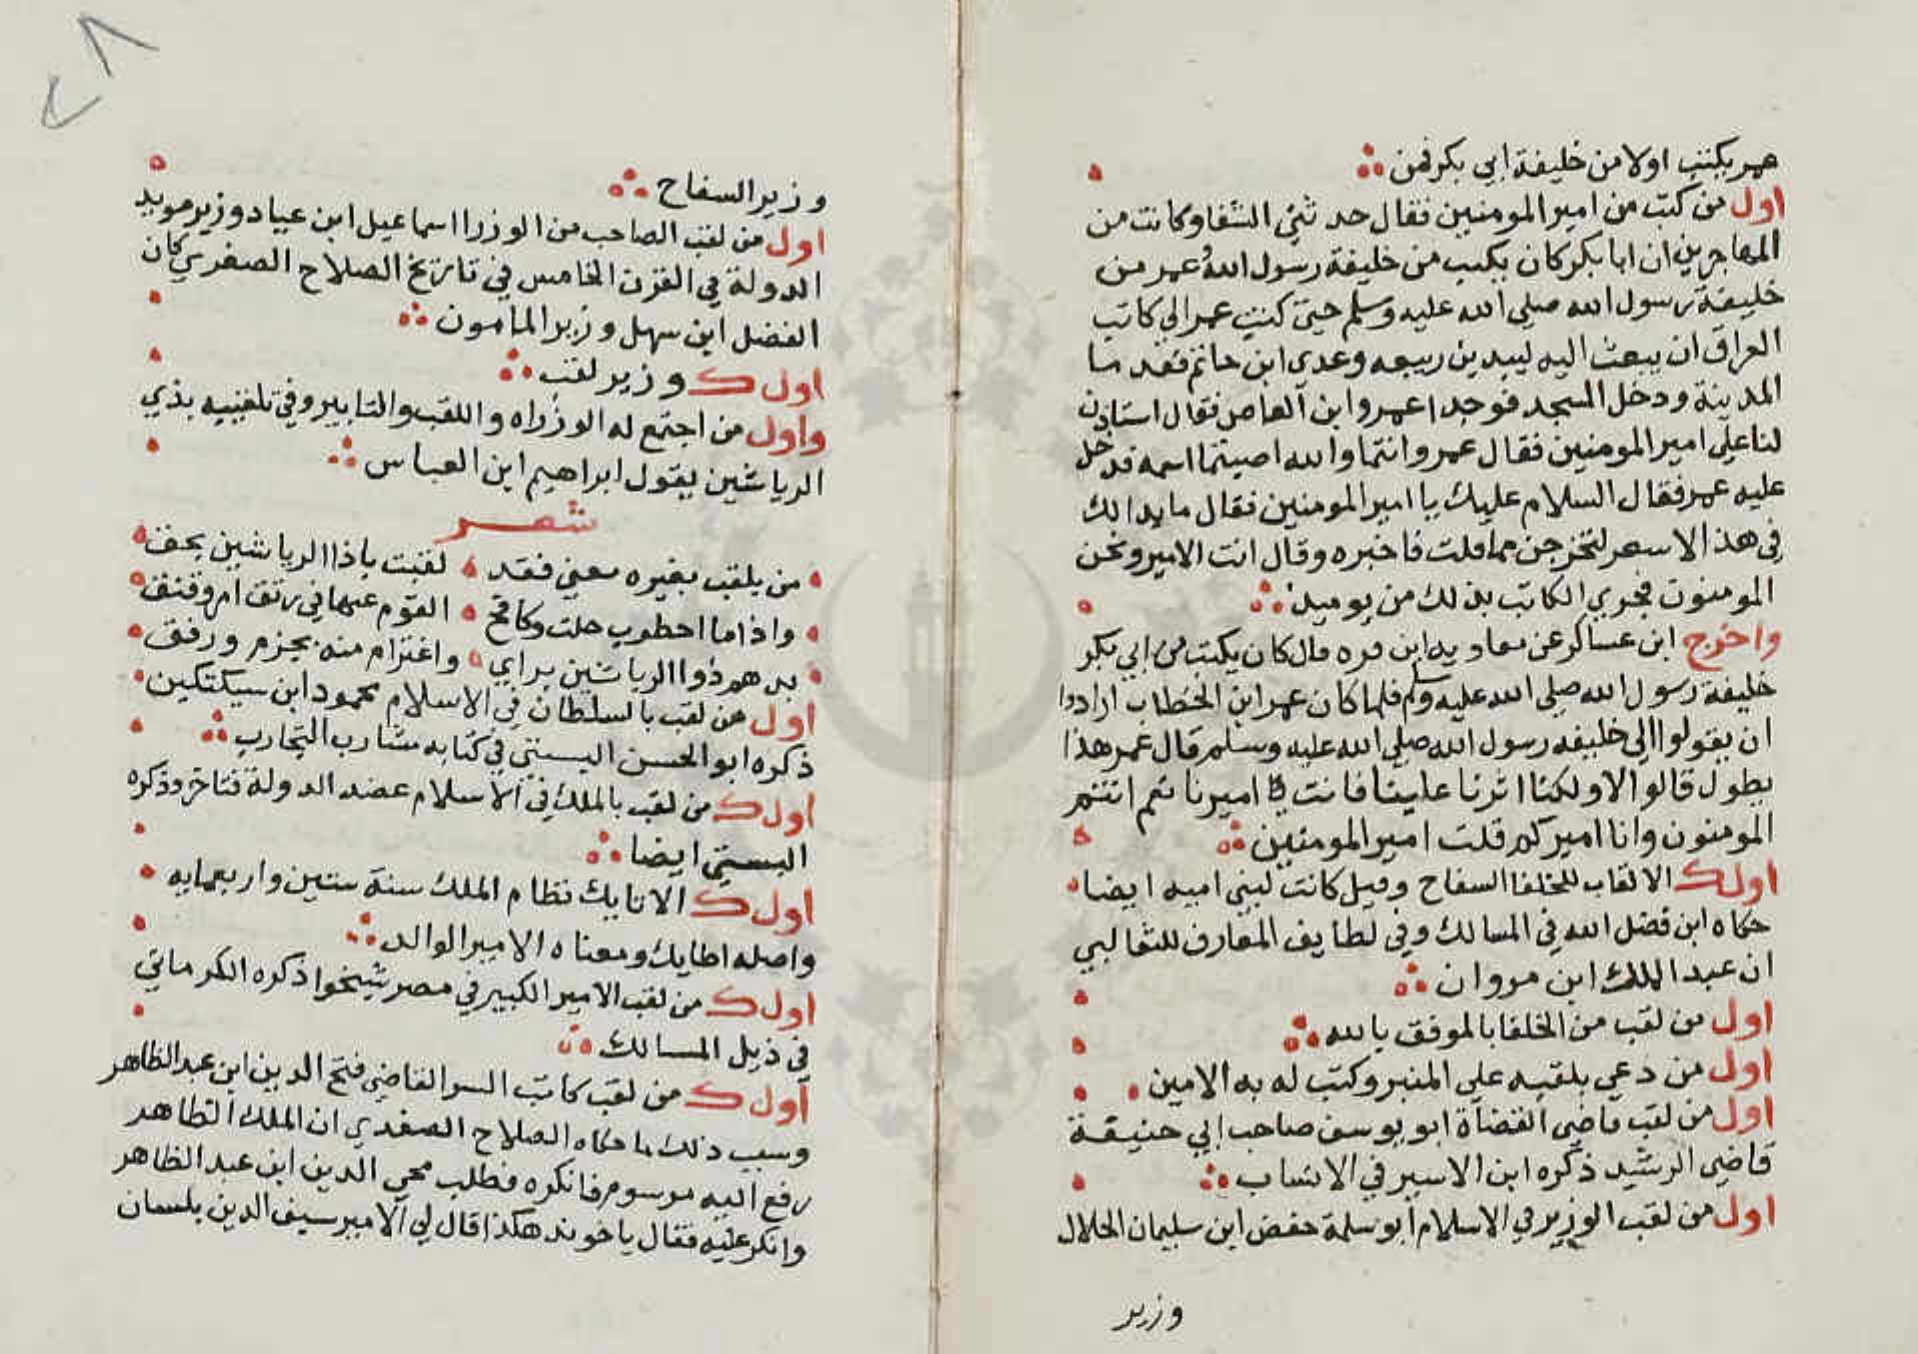 عمر يكتب اولا من خليفة ابي بكر فمن
اول من كتب من امير المومنين فقال حد ثني الشفا وكانت من
المهاجرين ان ابا بكر كان يكتب من خليفة رسول الله وعمر من
خليفة رسول الله صلي الله عليه وسلم حتى كتب عمر الي كاتب
العراق ان يبعث اليه لبيد بن ربيعه وعدي ابن حاتم فقد ما
المدينة ودخل المسجد فوجدا عمروا ابن العاص فقال استاذن
لنا علي امير المومنين فقال عمرو انتما والله اصبتما اسمه فدخل
عليه عمر فقال السلام عليك يا امير المومنين فقال ما بدا لك
في هذا الاسم لتخرجن مما قلت فاخبره وقال انت الامير ونحن
المومنون فجري الكاتب بذلك من يوميذ
واخرج ابن عساكر عن معاويه ابن قره قال كان يكتب من ابي بكر
خليفة رسول الله صلي الله عليه وسلم فلما كان عمر ابن الخطاب ارادوا
ان يقولوا الي خليفه رسول الله صلي الله عليه وسلم قال عمر هذا
يطول قالوا لا ولكنا اثرنا علينا فانت اميرنا نعم انتم
المومنون وانا اميركم قلت امير المومنين
اول الالقاب للخلفا السفاح وقيل كانت لبني اميه ايضا
حكاه ابن فضل الله في المسالك وفي لطايف المعارف للثعالبي
ان عبد الملك ابن مروان
اول من لقب من الخلفا بالموفق بالله
اول من دعي بلقبه علي المنبر وكتب له به الامين
اول من لقب قاضي القضاة ابو يوسف صاحب ابي حنيفة
قاضي الرشيد ذكره ابن الاسير في الانساب
اول من لقب الوزير في الاسلام ابو سلمة حفض ابن سليمان الخلال
وزير
٤٨
وزير السفاح
اول من لقب الصاحب من الوزرا اسماعيل ابن عباد وزير مويد
الدولة في القرن الخامس في تاريخ الصلاح الصفري كان
الفضل ابن سهل وزير المامون
اول وزير لقب
واول من اجتمع له الوزراه واللقب والتابير وفي تلقيبه بذي
الرياشين يقول ابراهيم ابن العباس
شعر
من يلقب بغيره معني فقد لقبت ياذا الرياشين بحق
واذا ما احطوب حلت القوم عنها في رتق ام وفتق
هم ذوا الرياشين براي واعتزام منه بحزم ورفق
اول من لقب بالسلطان في الاسلام محمود ابن سبكتكين
ذكره ابو الحسن البستي في كتابه مشارب التجارب
اول من لقب بالملك في الاسلام عضد الدولة فتاخر وذكره
البستي ايضا
اول الاتابك نظام الملك سنة ستين واربعمايه
واصله اطابك ومعناه الامير الوالد
اول من لقب الامير الكبير في مصر شيخوا ذكره الكرماني
في ذيل المسالك
اول من لقب كاتب السر القاضي فتح الدين ابن عبد الظاهر
وسبب ذلك ما حكاه الصلاح الصفدي ان الملك الظاهر
رفع اليه مرسوم فانكره فطلب محي الدين ابن عبد الظاهر
وانكر عليه فقال يا خوند هكذا قال لي الامير سيف الدين بلسان